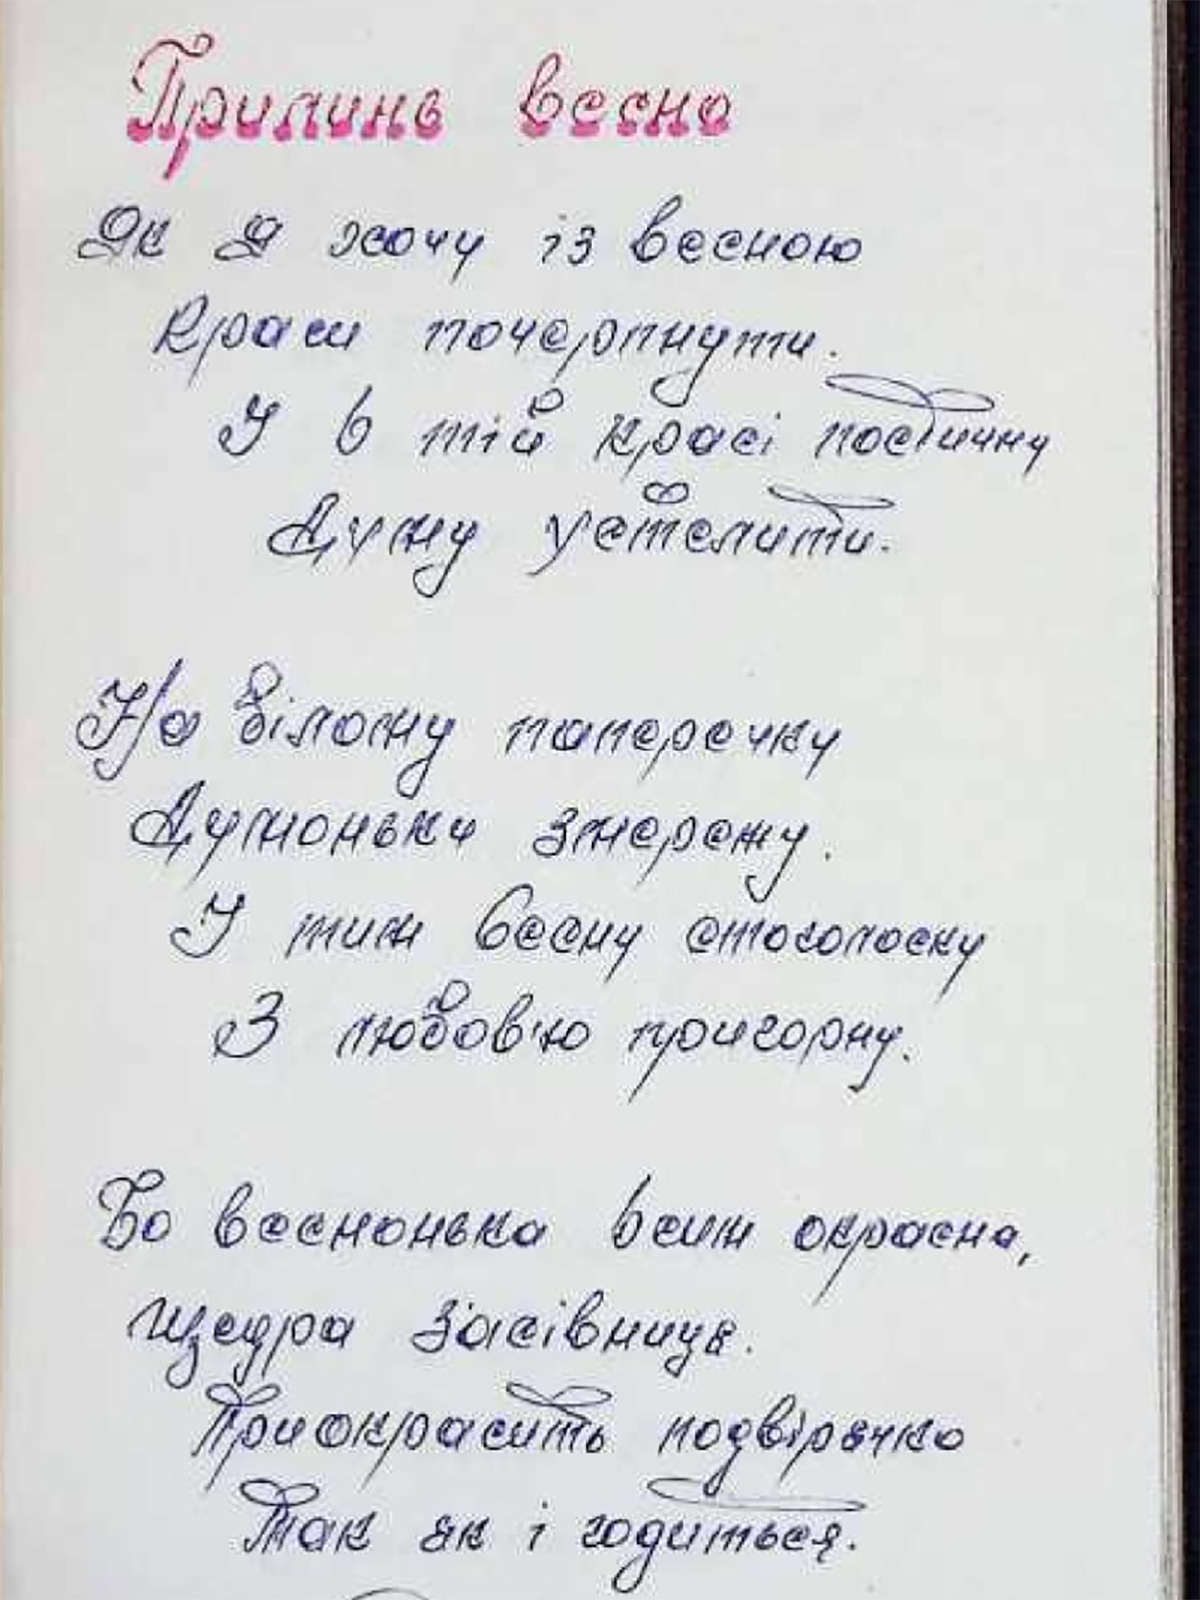 Прилинь весно
Як я хочу із весною
Краси почерпнути.
І в тій красі поетичну
Думу устелити.
На білому паперечку
Думоньки змережу.
І тиж весну стоголоску
З любов'ю пригорну.
Бо веснонька всим окрасна,
Щедра засівниця.
Приокрасить подвіречко
Так як і годиться.